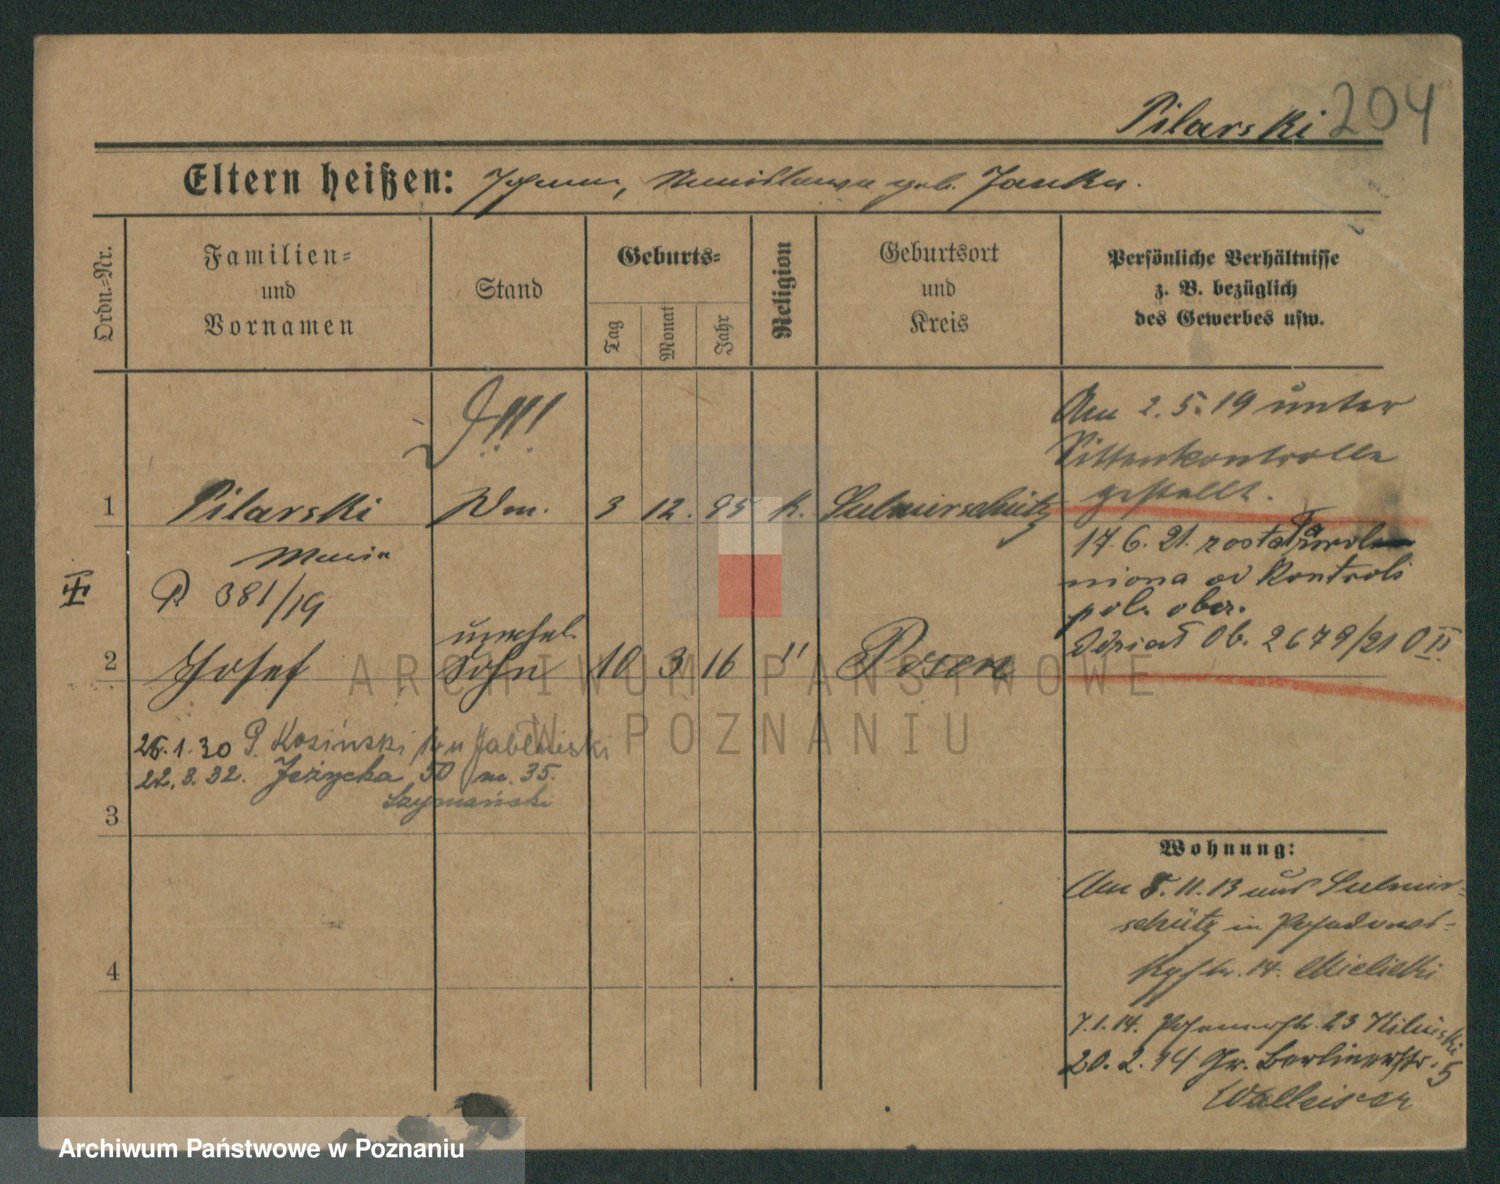 Pilarski 204
Eltern heißen: geb. Janka.
Ordn.-Nr.
Familien-
und
Vornamen
Stand
Geburts-
Tag
Monat
Jahr
Religion
Geburtsort
und
Kreis
Persönliche Verhältnisse
z. B. bezüglich
des Gewerbes usw.
!!!
Am 2.5.19 unter
Sittenkontrolle
gestellt.
1 Pilarski 3 12. 95 k. Sulmirschütz
Maria
17.6.21. została
niona od Kontroli
pol. obycz.
Ob. 2679/21 O II.
R 381/19
unehel.
2 Josef Sohn 10 3 16 " Posen
26.1.30 P. Kosiński
22.3.32. Jeżycka 50 m. 35.
Szymański
3
4
Wohnung:
Am 5.11.13 aus Sulmir-
schütz in
14. Mielicki
7.1.14. 23
20.2.14 Gr. Berlinerstr. 5
ARCHIWUM PAŃSTWOWE
W POZNANIU
Archiwum Państwowe w Poznaniu